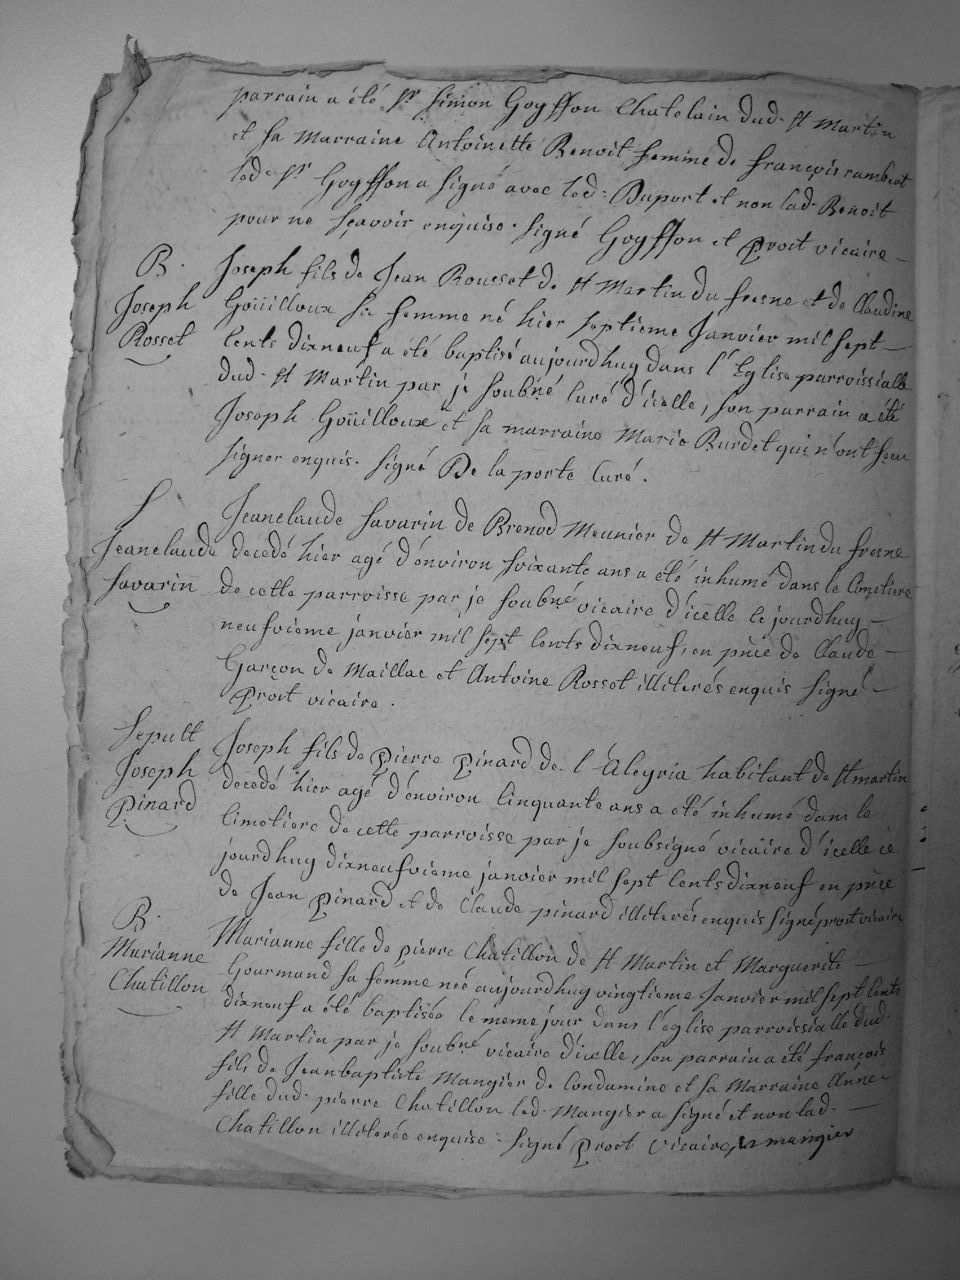 parrain a été Sr Simon Goyffon Chatelain dud. St Martin
et sa Marraine Antoinette Benoit femme de françois rambert
led. Sr Goyffon a signé avec led. Duport et non lad. Benoit
pour ne sçavoir enquise. signé Goyffon et Proit vicaire
B.
Joseph
Rosset
Joseph fils de Jean Rousset de St Martin du fresne et de Claudine
Goüilloux sa femme né hier septieme Janvier mil sept
Cents dixneuf a été baptisé aujourdhuy dans l'Eglise parroissialle
dud. St Martin par je soubné Curé d'icelle, son parrain a été
Joseph Goüilloux et sa marraine Marie Burdet qui n'ont sceu
signer enquis. signé De la porte Curé.
S
Jeanclaude
Savarin
Jeanclaude Savarin de Brenod Meunier de St Martin du fresne
decedé hier agé d'environ soixante ans a été inhumé dans le Cimetiere
de cette parroisse par je soubné vicaire d'icelle ce jourdhuy
neufvieme janvier mil sept Cents dixneuf, en pñce de Claude
Garçon de Maillac et Antoine Rosset illiterés enquis signé
Proit vicaire.
Sepult
Joseph
Pinard
Joseph fils de Pierre Pinard de l'Aleyria habitant de St martin
decedé hier agé d'environ Cinquante ans a été inhumé dans le
Cimetiere de cette parroisse par je soubsigné vicaire d'icelle ce
jourdhuy dixneufvieme janvier mil sept Cents dixneuf en pñce
de Jean Pinard et de Claude pinard illiterés enquis signé proit vicaire
B.
Marianne
Chatillon
Marianne fille de pierre Chatillon de St Martin et Marguerite
Gourmand sa femme neé aujourdhuy vingtieme Janvier mil sept Cents
dixneuf a été baptisée le meme jour dans l'église parroissialle dud.
St Martin par je soubné vicaire d'icelle, son parrain a été françois
fils de Jeanbaptiste Mangier de Condamine et sa Marraine Anne
fille dud. pierre Chatillon led. Mangier a signé et non lad.
Chatillon illiterée enquise. signé Proit Vicaire, mangier